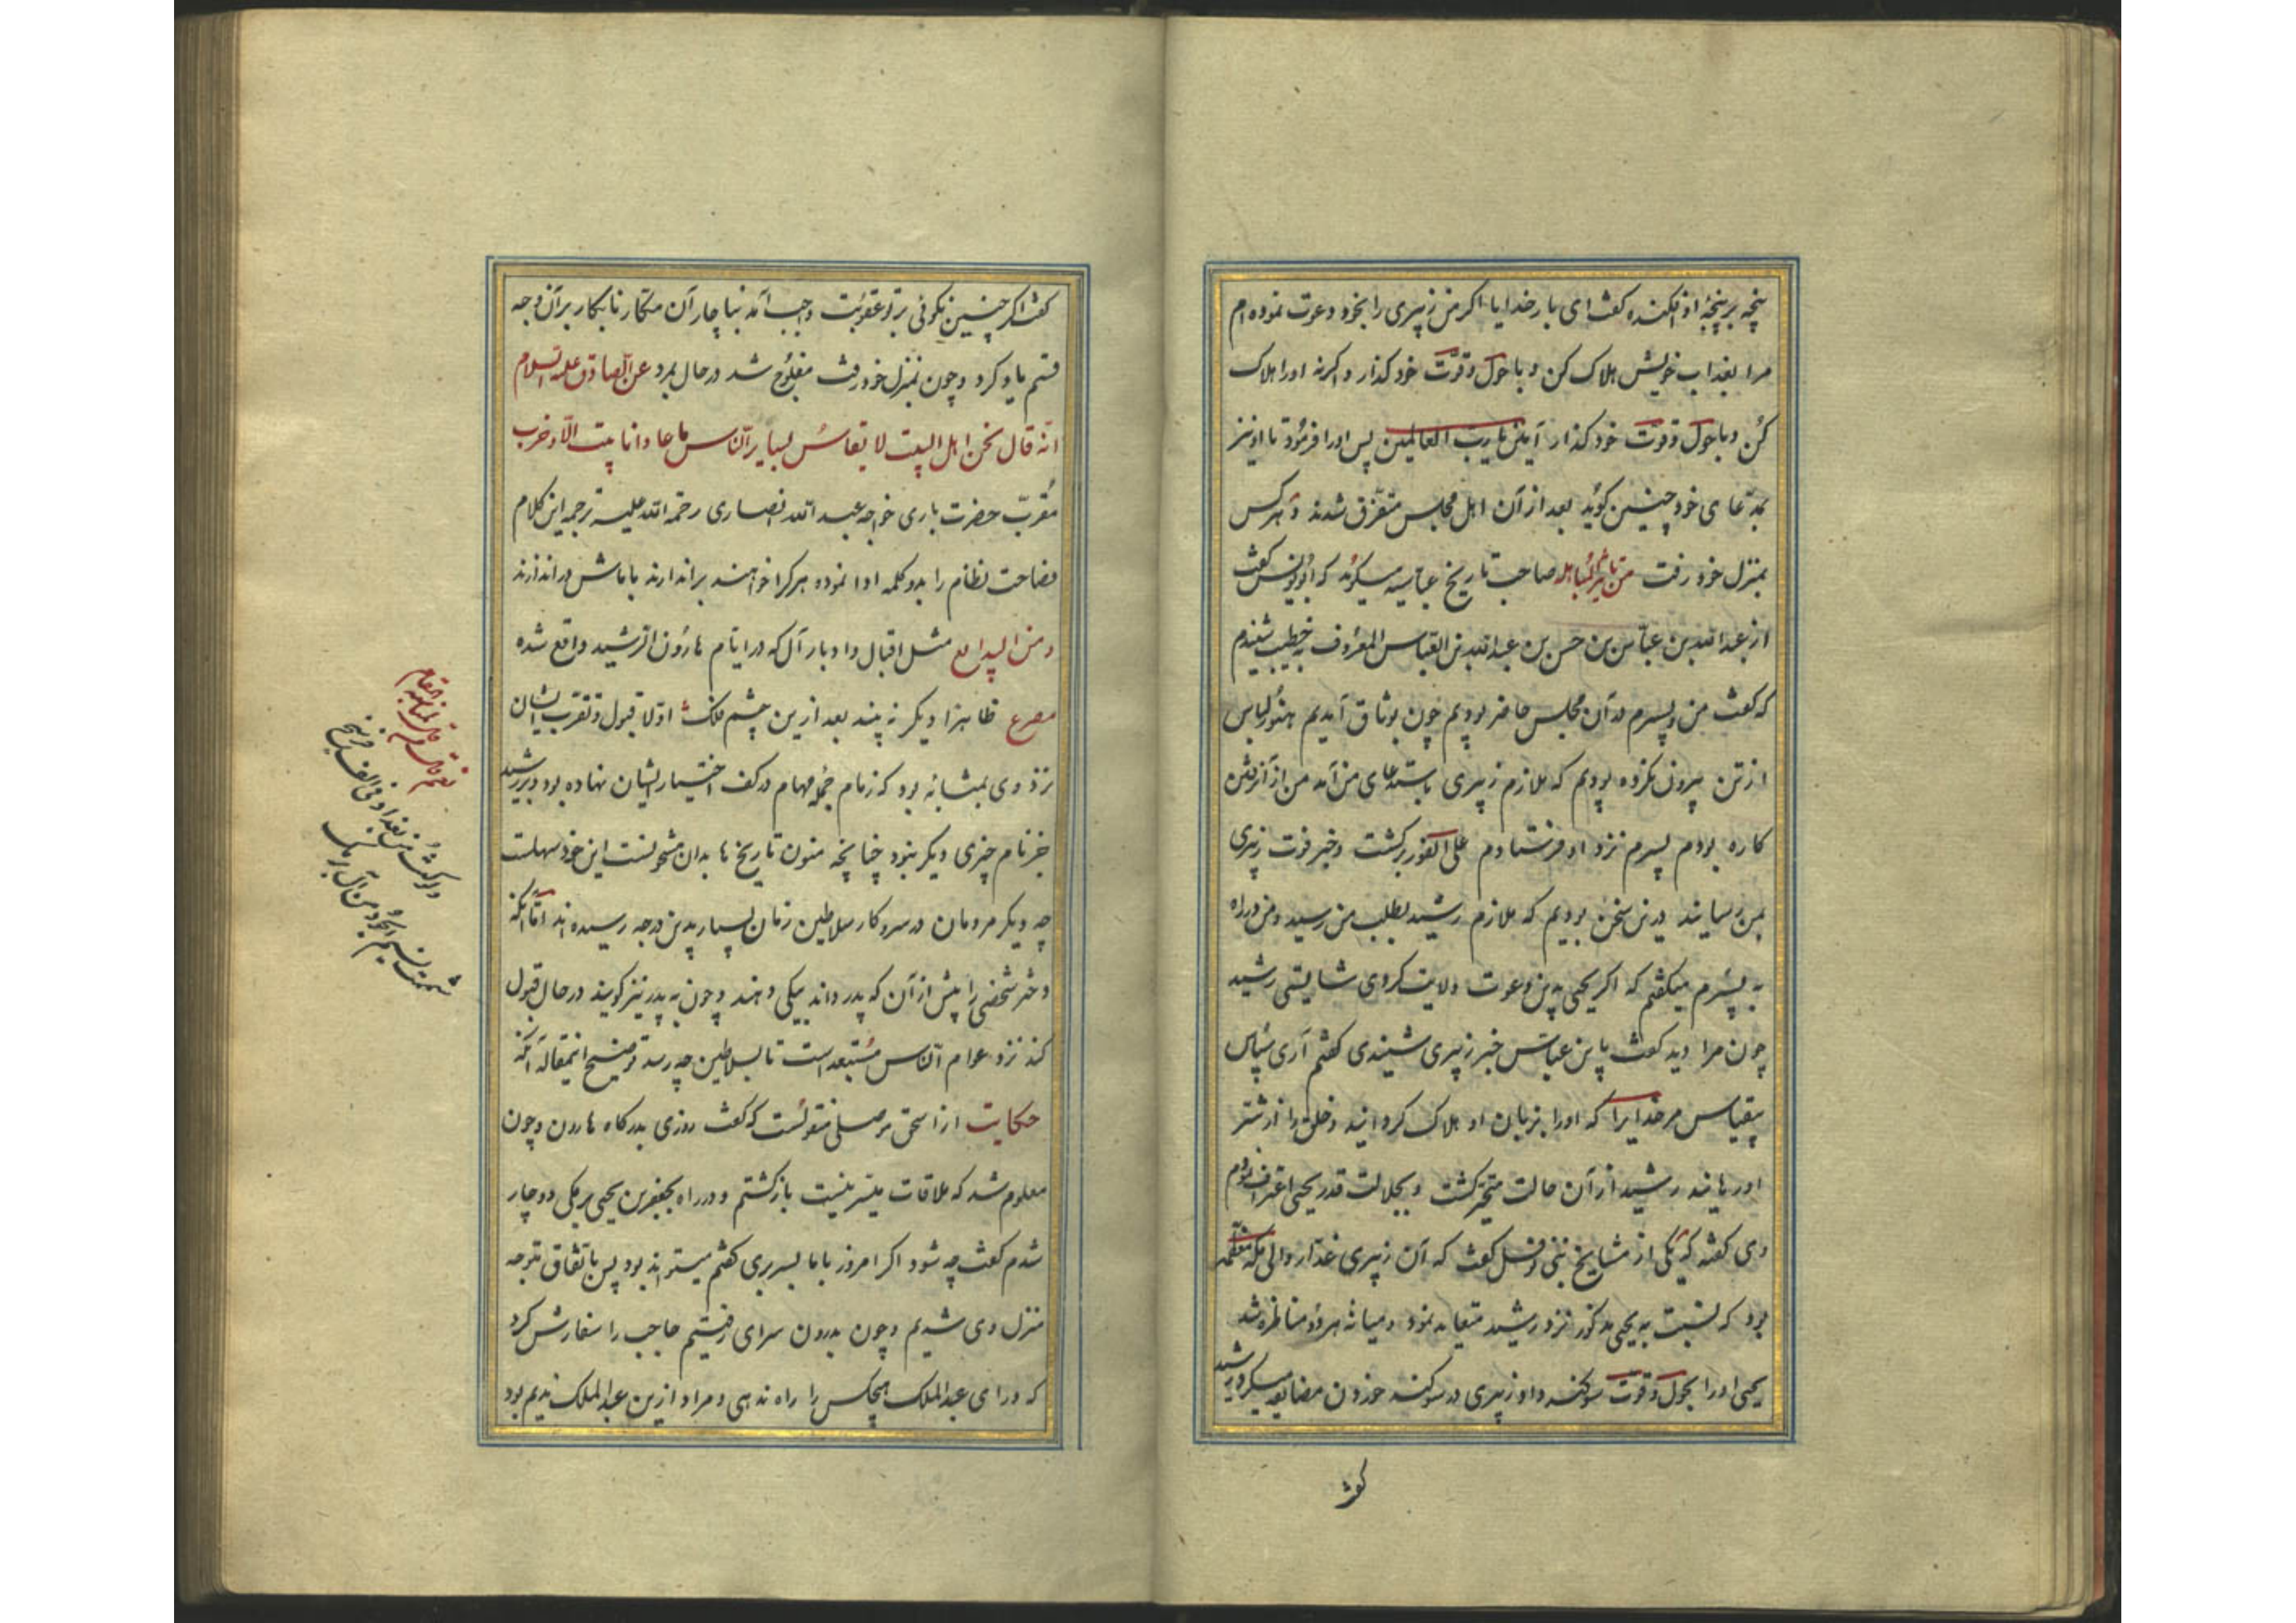 پنجه بر پنجهٔ او افکنده کفت ای بار خدایا اکر من زبیری را بخود دعوت نموده ام
مرا بعذاب خویش هلاک کن و با حول و قوّت خود کذار و اکرنه اورا هلاک
کن و با حول و قوّت خود کذار آمین یا ربّ العالمین پس اورا فرمود تا او نیز
بمدّعای خود چنین کوید بعد از آن اهل مجلس متفرّق شدند و هر کس
بمنزل خود رفت من تاثیر المباهله صاحب تاریخ عباسیه میکوید که ابویونس کفت
از عبدالله بن عبّاس بن حسن بن عبدالله بن العباس المعروف به خطیب شنیدم
که کفت من و پسرم در آن مجلس حاضر بودیم چون بوثاق آمدیم هنوز لباس
از تن بیرون نکرده بودیم که ملازم زبیری باستدعای من آمد من از آن رفتن
کاره بودم پسرم نزد او فرستادم علی الفور برکشت و خبر فوت زبیری
بمن رسانید درین سخن بودیم که ملازم رشید بطلب من رسید و من در راه
به پسرم میکفتم که اکر یحیی بدین دعوت ولایت کردی شایستی رشید
چون مرا دید کفت یا بن عبّاس خبر زبیری شنیدی کفتم آری سپاس
بیقیاس مر خدایرا که اورا بزبان او هلاک کردانید و خلق را از شرّ
او رهانید رشید از آن حالت متحیّر کشت و بجلالت قدر یحیی اعتراف نمودم
وی کفته که یکی از مشایخ بنی نوفل کفت که آن زبیری غدّار والی مکهٔ معظّمه
بود که نسبت به یحیی مذکور نزد رشید متعابه نمود و میانهٔ هر دو مناظره شد
یحیی اورا بحول و قوّت سوکند داد و زبیری در سوکند خوردن مضایقه میکرد رشید
کفت
کفت اکر چنین نکوئی بر تو عقوبت واجب آمد بناچار آن ستمکار نابکار بر آن وجه
قسم یاد کرد و چون بمنزل خود رفت مفلوج شد در حال بمرد عن الصادق علیه السلام
انّه قال نحن اهل البیت لا یقاس بسایر النّاس ما عادانا بیت الّا و خرب
مقرّب حضرت باری خواجه عبد الله انصاری رحمه الله علیه ترجمه این کلام
فصاحت نظام را بدو کلمه ادا نموده هر کرا خواهند براندازند با ماش دراندازند
و من البدایع مثل اقبال و ادبار آل که در ایّام هارون الرشید واقع شده
مصرع ظاهرا دیکر نه بیند بعد ازین چشم فلک اوّلا قبول و تقرب ایشان
نزد وی بمثابهٔ بود که زمام جمله مهام در کف اختیار ایشان نهاده بود و بر رشید
جز نام چیزی دیکر نبود چنانچه متون تاریخ ها بدان مشحونست این خود سهلست
چه دیکر مردمان در سرو کار سلاطین زمان بسیار بدین درجه رسیده اند امّا آنکه
دختر شخصی را پیش از آن که پدر داند بیکی دهند و چون به پدر نیز کویند در حال قبول
کند نزد عوام النّاس مستبعد است تا بسلاطین چه رسد توضیح اینمقاله آنکه
حکایت از اسحق موصلی منقولست که کفت روزی بدرکاه هارون و چون
معلوم شد که ملاقات میسّر نیست بازکشتم و در راه بجعفر بن یحیی برمکی دوچار
شدم کفت چه شود اکر امروز باما بسر بری کفتم میتواند بود پس باتفاق متوجه
منزل وی شدیم و چون بدرون سرای رفتیم حاجب را سفارش کرد
که ورای عبدالملک هیچکس را راه ندهی و مراد ازین عبدالملک ندیم بود